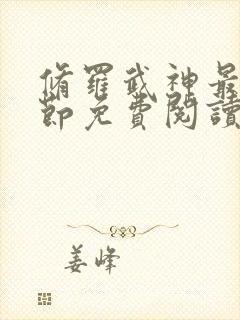 脩羅武神最
節免費閱讀
姜峰